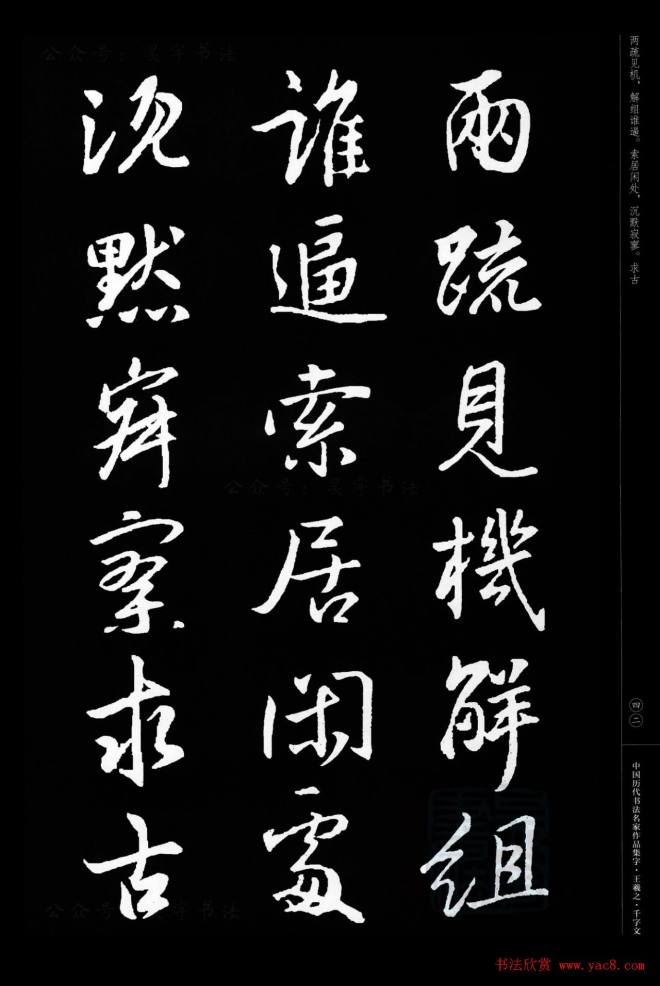 两疏见机，解组谁逼。索居闲处，沉默寂寥。求古
兩疏見機解組
誰逼索居閑處
沉默寂寥求古
四二
中国历代书法名家作品集字·王羲之·千字文
公众号：晨字书法
公众号：晨字书法
公众号：晨字书法
书法欣赏 www.yac8.com